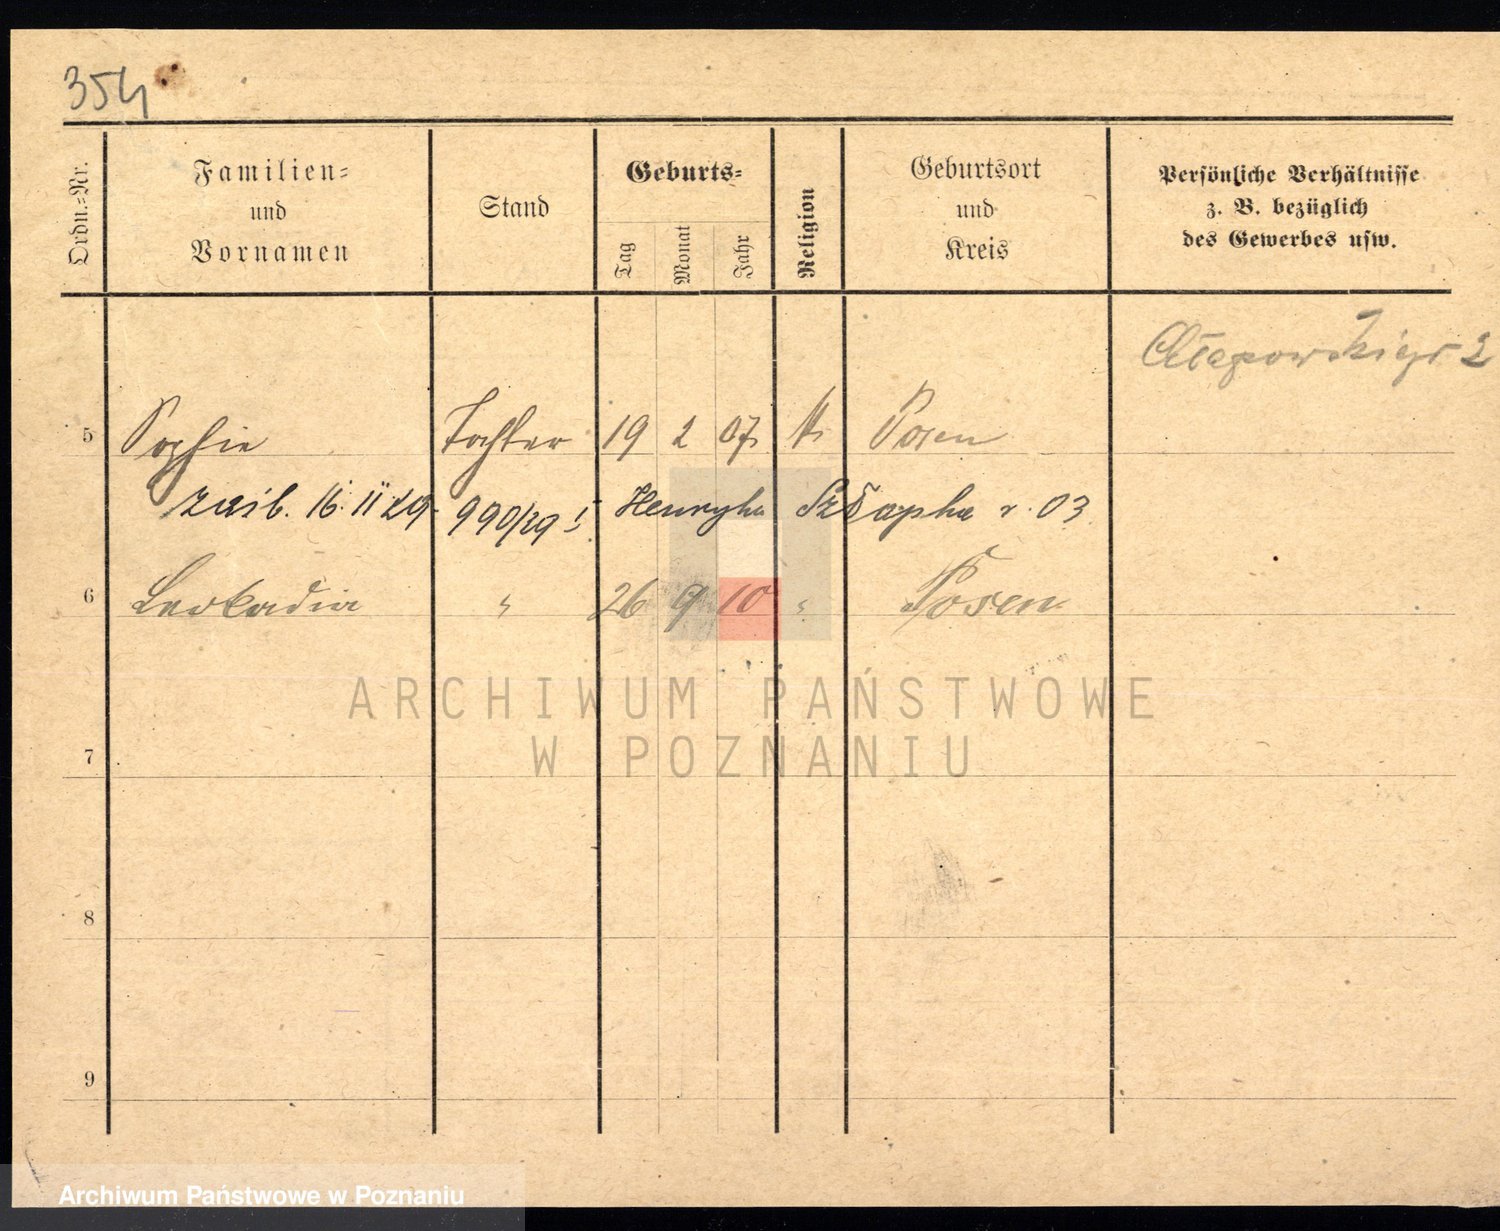 354
Ordn.-Nr. Familien- und Vornamen Stand Geburts- Tag Monat Jahr Religion Geburtsort und Kreis Persönliche Verhältnisse z. B. bezüglich des Gewerbes usw.
Chłapowskiego 2
5 Sophie Tochter 19 2 07 k. Posen
zaśl. 16.11.29. 990/29 I Henryka Szłapka r. 03
6 Leokadia " 26 9 10 " Posen
7
8
9
ARCHIWUM PAŃSTWOWE
W POZNANIU
Archiwum Państwowe w Poznaniu